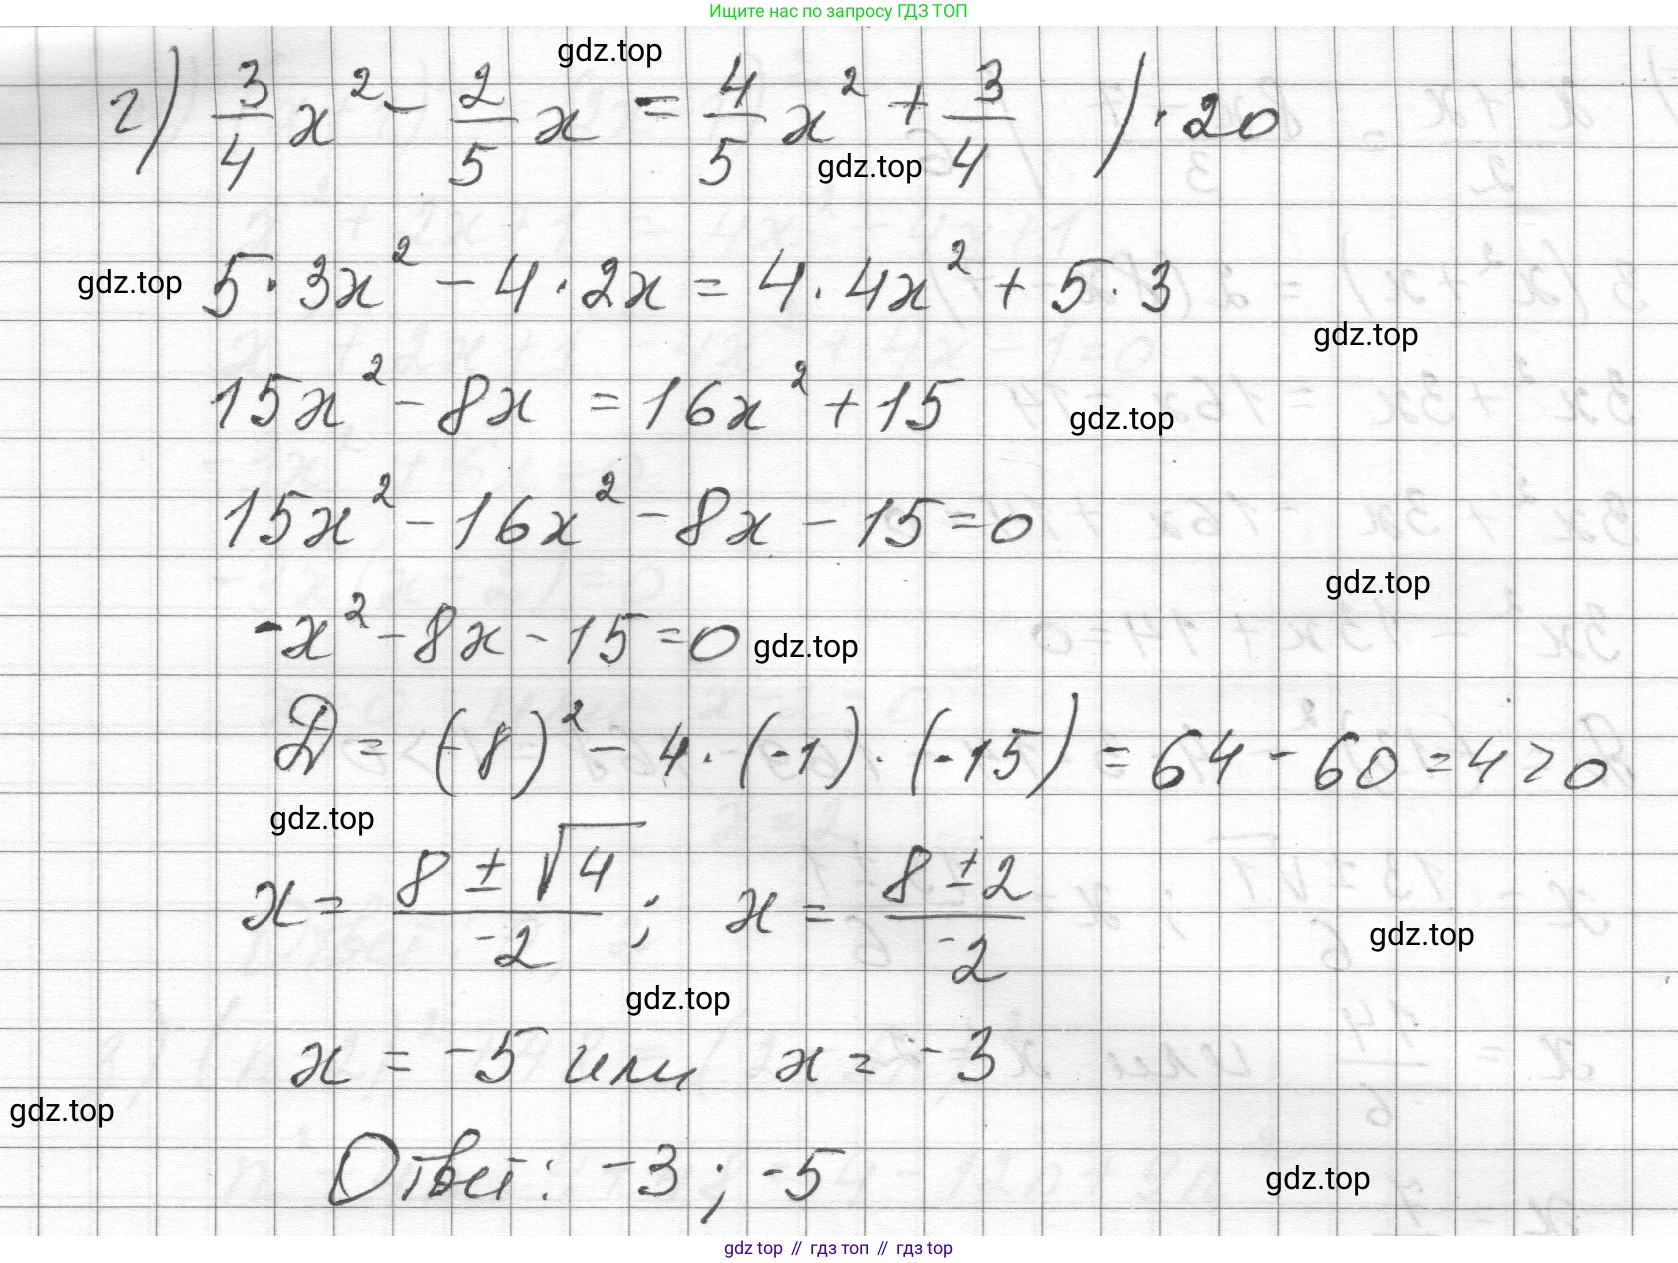 Ищите нас по запросу ГДЗ ТОП
gdz.top
г) 3/4 x² - 2/5 x = 4/5 x² + 3/4 ) · 20
gdz.top
gdz.top 5 · 3x² - 4 · 2x = 4 · 4x² + 5 · 3
gdz.top
15x² - 8x = 16x² + 15 gdz.top
15x² - 16x² - 8x - 15 = 0
gdz.top
-x² - 8x - 15 = 0 gdz.top
D = (-8)² - 4 · (-1) · (-15) = 64 - 60 = 4 > 0
gdz.top
x = (8 ± √4)/(-2) ; x = (8 ± 2)/(-2) gdz.top
gdz.top
x = -5 или x = -3
gdz.top
Ответ: -3 ; -5 gdz.top
gdz top // гдз топ // гдз top